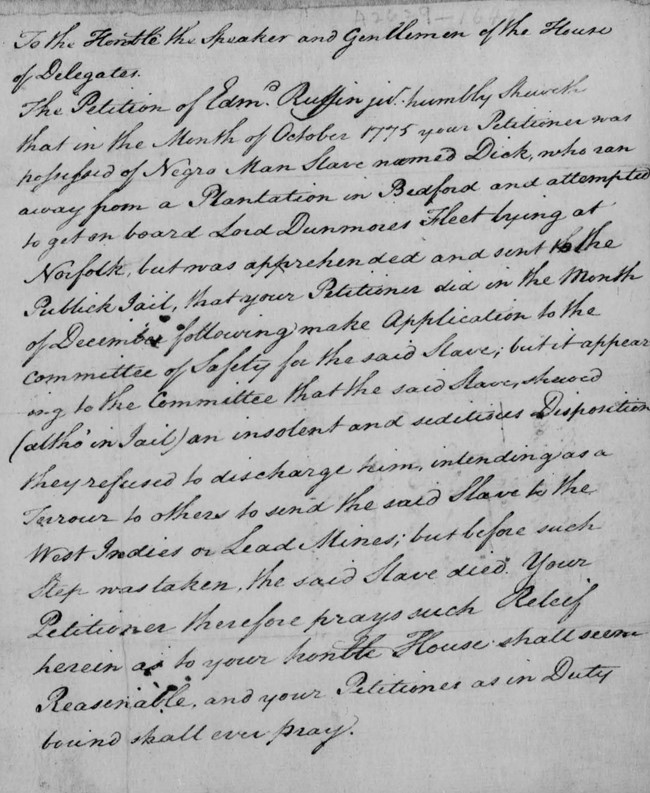 To the Honble the Speaker and Gentlemen of the House
of Delegates.
The Petition of Edmd. Ruffin jur. humbly Sheweth
that in the Month of October 1775 your Petitioner was
possessed of Negro Man Slave named Dick, who ran
away from a Plantation in Bedford and attempted
to get on board Lord Dunmores Fleet lying at
Norfolk, but was apprehended and sent to the
Publick Jail, that your Petitioner did in the Month
of December following make Application to the
Committee of Safety for the said Slave; but it appear
ing to the Committee that the said Slave, shewed
(altho' in Jail) an insolent and seditious Disposition
they refused to discharge him, intending as a
Terrour to others to send the said Slave to the
West Indies or Lead Mines; but before such
Step was taken, the said Slave died. Your
Petitioner therefore prays such Releif
herein as to your honble House shall seem
Reasonable, and your Petitioner as in Duty
bound shall ever pray.